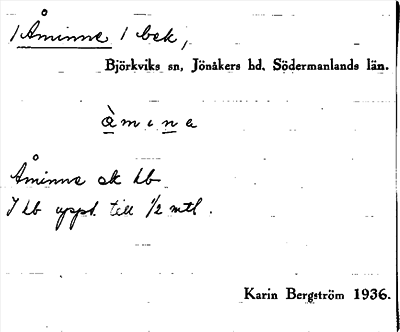 /Åminne / bek,
Björkviks sn, Jönåkers hd, Södermanlands län.
àmine
Åminne sk hb
I hb uppt. till 1/2 mtl.
Karin Bergström 1936.